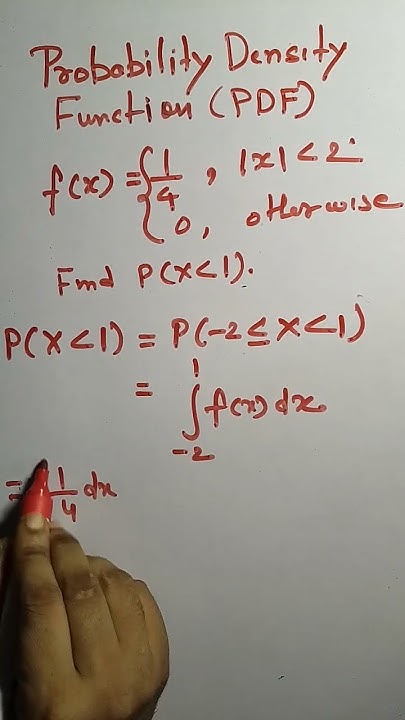 Probability Density
Function (PDF)
f(x) = { 1/4 , |x| < 2
0, otherwise
Find P(X<1).
P(X<1) = P(-2≤X<1)
= ∫_{-2}^{1} f(x) dx
= 1/4 dx